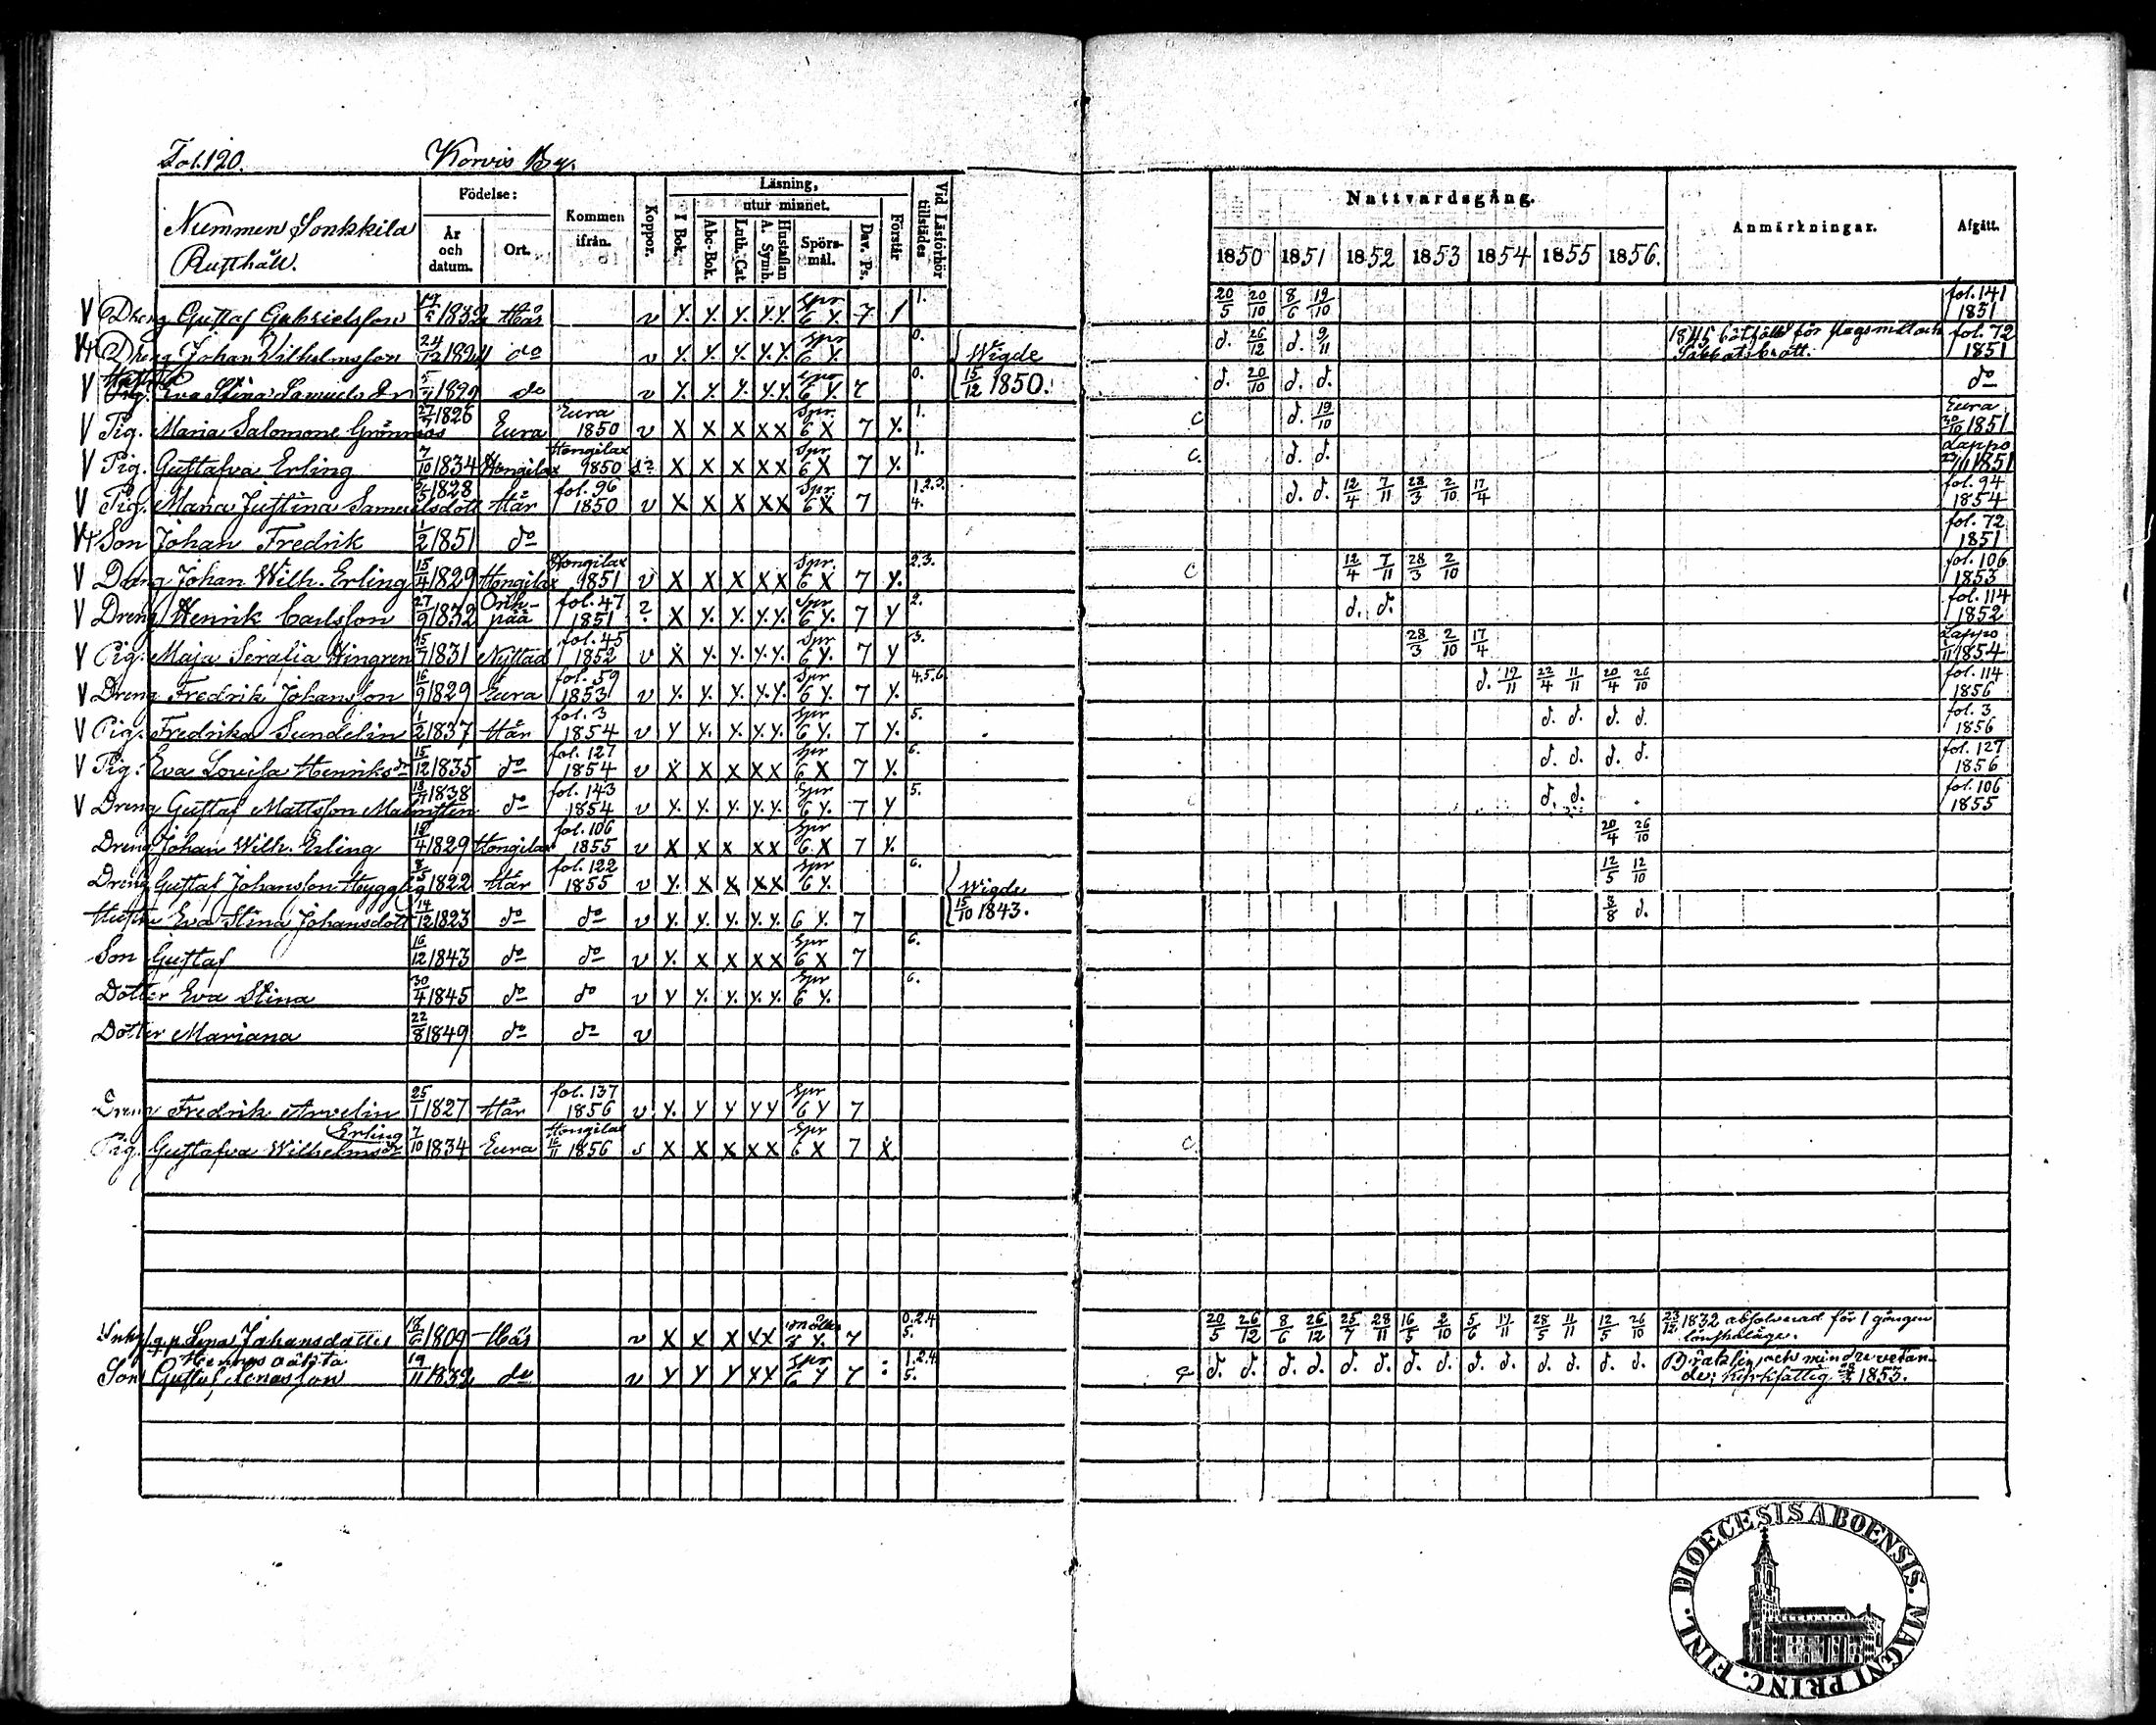 Fol. 120. Korvis By.
Nummen Sonkkila
Rusthåll.
Födelse:
År och datum.
Ort.
Kommen ifrån.
Koppor.
Läsning,
utur minnet.
I Bok.
Abc-Bok.
Luth. Cat.
Hustaflan A. Symb.
Spörs-mål.
Dav. Ps.
Förstår
Vid Läsförhör tillstädes
Nattvardsgång.
1850 1851 1852 1853 1854 1855 1856.
Anmärkningar.
Afgått.
V Dreng Gustaf Gabrielsson 1832 Här v y. y. y. y. y. Spr 6 y. 7 1. 20/5 20/10 8/6 19/10 fol. 141 1851
Dreng Johan Wilhelmsson 24/12 1824 do v y. y. y. y. y. Spr 6 y. 0. Wigde d. 26/12 d. 9/11 fol. 72 1851
V Eva Stina Samuelsdr 1829 do v y. y. y. y. y. 6 y. 7 0. 15/12 1850. d. 20/10 d. d. do
V Pig. Maria Salomone Grönroos 27/7 1826 Eura Eura 1850 v X X X X X Spr. 6 X 7 y. 1. c d. 19/10 Eura 1851
V Pig. Gustafva Erling 7/10 1834 Hongilax Hongilax 1850 s? X X X X X Spr. 6 X 7 y. 1. c. d. d. Lappo 1851
V Pig. Maria Justina Samuelsdott 1828 Här fol. 96 1850 v X X X X X Spr. 6 X 7 1.2.3. 4. d. d. 12/4 7/11 28/3 2/10 17/4 fol. 94 1854
Son Johan Fredrik 1/2 1851 do fol. 72 1851
V Dreng Johan Wilh. Erling 15/4 1829 Hongilax Hongilax 1851 v X X X X X Spr. 6 X 7 y. 2.3. c 12/4 7/11 28/3 2/10 fol. 106 1853
V Dreng Henrik Carlsson 27/9 1832 Orihpää fol. 47 1851 ? X y. y. y. y. Spr 6 y. 7 y 2. d. d. fol. 114 1852
V Pig. Maja Seralia Hingren 15/7 1831 Nystad fol. 45 1852 v X y. y. y. y. Spr 6 y. 7 y 3. 28/3 2/10 17/4 Lappo 1854
V Dreng Fredrik Johansson 16/9 1829 Eura fol. 59 1853 v y. y. y. y. y. Spr 6 y. 7 y. 4.5.6. d. 19/11 22/4 11/11 20/4 26/10 fol. 114 1856
V Pig. Fredrika Sundelin 1/2 1837 Här fol. 3 1854 v y y. y. y. y. Spr 6 y. 7 y. 5. d. d. d. d. fol. 3 1856
V Pig. Eva Lovisa Henriksdr 15/12 1835 do fol. 127 1854 v X X X X X Spr 6 X 7 y. 6. d. d. d. d. fol. 127 1856
V Dreng Gustaf Mattsson Malmsten 1838 do fol. 143 1854 v y. y. y. y. y. Spr 6 y. 7 y 5. d. d. fol. 106 1855
Dreng Johan Wilh. Erling 15/4 1829 Hongilax fol. 106 1855 v X X X X X Spr 6 X 7 y. 20/4 26/10
Dreng Gustaf Johansson Hygglig 8/5 1822 Här fol. 122 1855 v y. X X X X Spr 6 y. 6. Wigde 12/5 12/10
Hustru Eva Stina Johansdott 14/12 1823 do do v y. y. y. y. y. 6 y. 7 15/10 1843. 3/8 d.
Son Gustaf 16/12 1843 do do v y. X X X X Spr 6 X 7 6.
Dotter Eva Stina 30/4 1845 do do v y y. y. y. y. Spr 6 y. 6.
Dotter Mariana 22/8 1849 do do v
Dreng Fredrik Arvelin 25/1 1827 Här fol. 137 1856 v y. y y y y Spr 6 y 7
Erling
Pig. Gustafva Wilhelmsdr 7/10 1834 Eura Hongilax 16/11 1856 s X X X X X Spr 6 X 7 X. c
Lena Johansdotter 1809 Här v X X X X X 8 y. 7 0.2.4. 5. 20/5 26/12 8/6 26/12 25/7 28/11 16/5 2/10 5/6 28/5 11/11 12/5 26/10 1832 absolverad för 1 gången lönskaläge.
Son Gustaf 19/11 1832 do v y y y y y Spr 6 y 7 1.2.4. 5. d. d. d. d. d. d. d. d. d. d. d. d. d. d. Bräklig och mindre vetande; 1853.
DIOECESIS ABOENSIS. MAGNI PRINC. FINL.